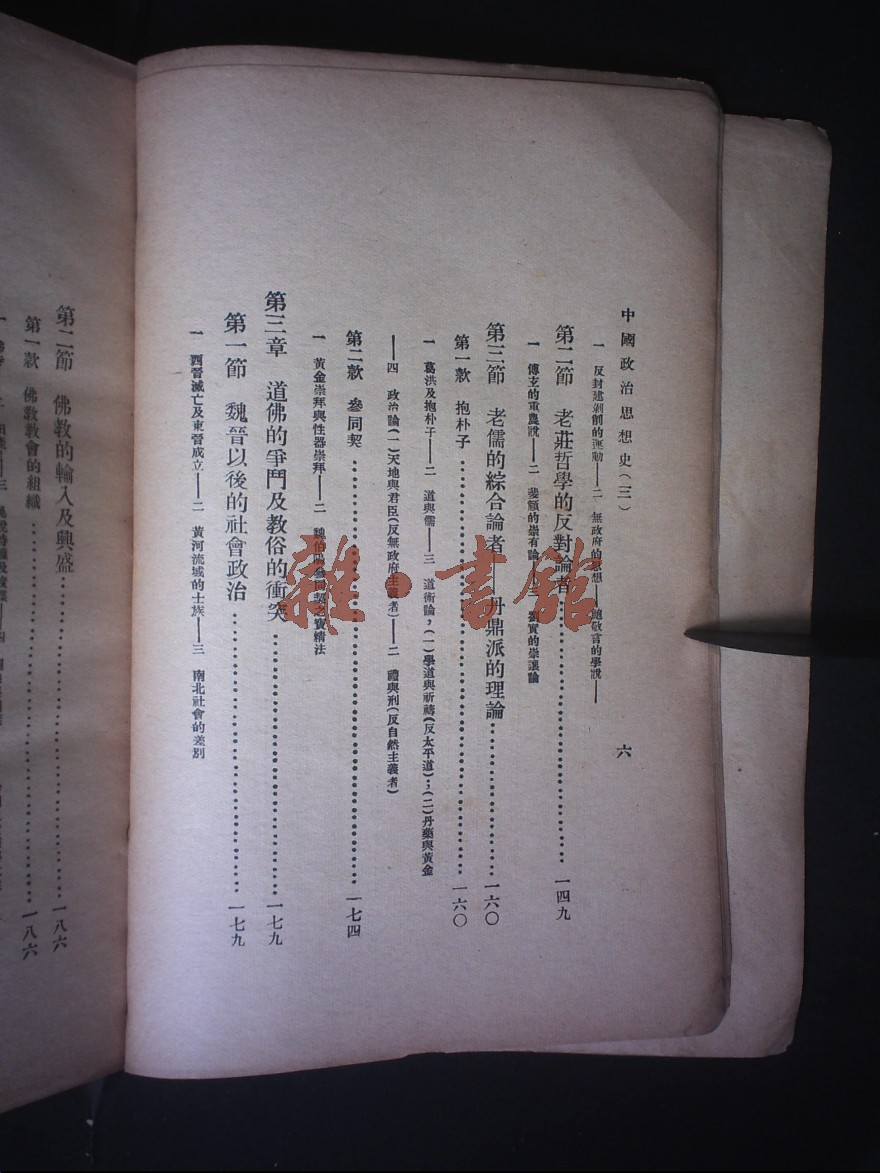 中國政治思想史(三)
六
一 反封建剝削的運動——二 無政府的思想——鮑敬言的學說——
第二節 老莊哲學的反對論者 一四九
一 傅玄的重農說——二 裴頠的崇有論 劉實的崇讓論
第三節 老儒的綜合論者——丹鼎派的理論 一六〇
第一款 抱朴子 一六〇
一 葛洪及抱朴子——二 道與儒——三 道術論，(一)學道與祈禱(反太平道)；(二)丹藥與黃金
——四 政治論(一)天地與君臣(反無政府主義者)——二 禮與刑(反自然主義者)
第二款 參同契 一七四
一 黃金崇拜與性器崇拜——二 魏伯陽參同契之寶精法
第三章 道佛的爭鬥及教俗的衝突 一七九
第一節 魏晉以後的社會政治 一七九
一 西晉滅亡及東晉成立——二 黃河流域的士族——三 南北社會的差別
第二節 佛教的輸入及興盛 一八六
第一款 佛教教會的組織 一八六
雜·書館